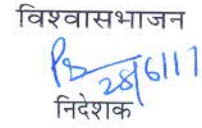 विश्वासभाजन
28/6/17
निदेशक